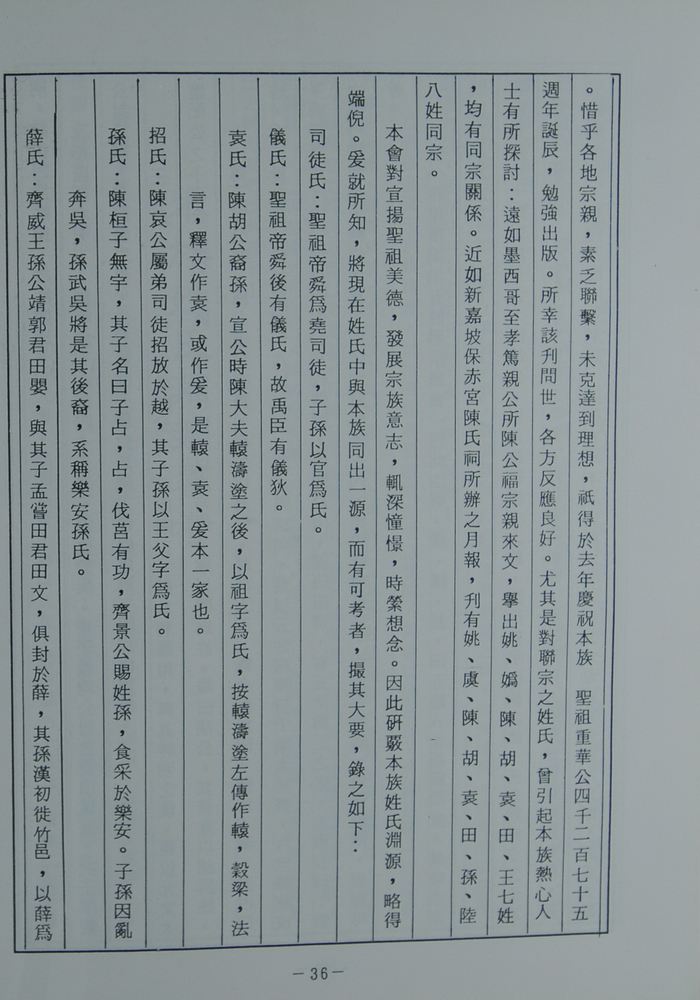 。惜乎各地宗親，素乏聯繫，未克達到理想，祇得於去年慶祝本族　聖祖重華公四千二百七十五
週年誕辰，勉強出版。所幸該刋問世，各方反應良好。尤其是對聯宗之姓氏，曾引起本族熱心人
士有所探討：遠如墨西哥至孝篤親公所陳公福宗親來文，擧出姚、嬀、陳、胡、袁、田、王七姓
，均有同宗關係。近如新嘉坡保赤宮陳氏祠所辦之月報，刋有姚、虞、陳、胡、袁、田、孫、陸
八姓同宗。
本會對宣揚聖祖美德，發展宗族意志，輒深憧憬，時縈想念。因此硏覈本族姓氏淵源，略得
端倪。爰就所知，將現在姓氏中與本族同出一源，而有可考者，撮其大要，錄之如下：
司徒氏：聖祖帝舜爲堯司徒，子孫以官爲氏。
儀氏：聖祖帝舜後有儀氏，故禹臣有儀狄。
袁氏：陳胡公裔孫，宣公時陳大夫轅濤塗之後，以祖字爲氏，按轅濤塗左傳作轅，穀梁，法
言，釋文作袁，或作爰，是轅、袁、爰本一家也。
招氏：陳哀公屬弟司徒招放於越，其子孫以王父字爲氏。
孫氏：陳桓子無宇，其子名曰子占，占，伐莒有功，齊景公賜姓孫，食采於樂安。子孫因亂
奔吳，孫武吳將是其後裔，系稱樂安孫氏。
薛氏：齊威王孫公靖郭君田嬰，與其子孟嘗田君田文，俱封於薛，其孫漢初徙竹邑，以薛爲
－36－